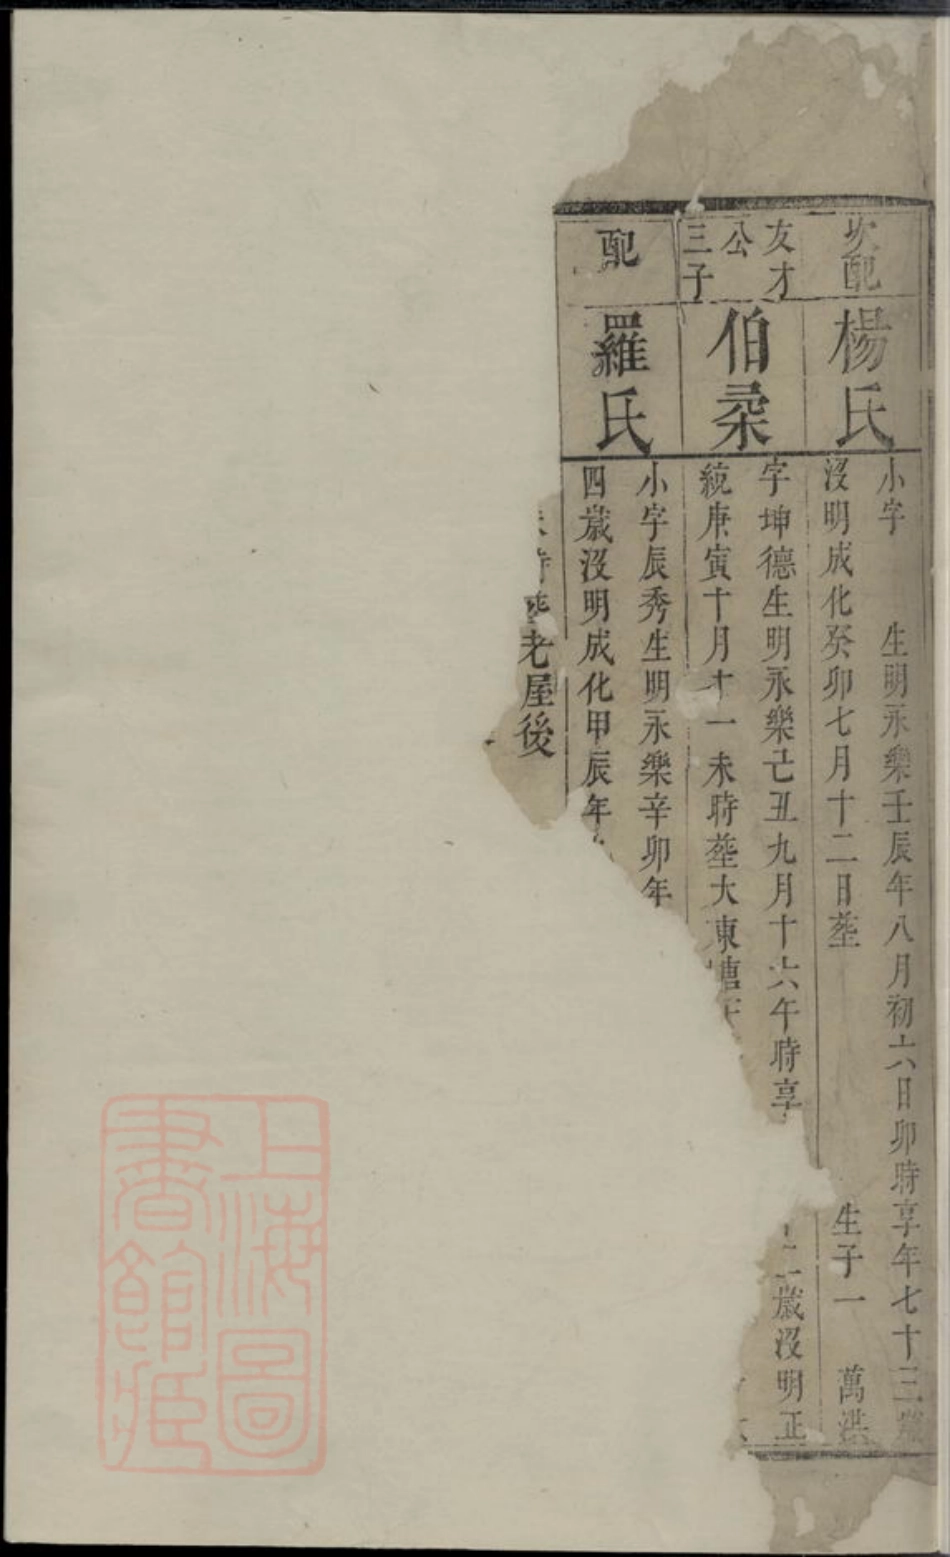 次配
楊氏
小字 生明永樂壬辰年八月初六日卯時享年七十三歲
沒明成化癸卯七月十二日塟 生子一 萬洪
友才
公
三子
伯桒
字坤德生明永樂己丑九月十六午時享
歲沒明正
統庚寅十月十一未時塟大東
配
羅氏
小字辰秀生明永樂辛卯年
四歲沒明成化甲辰年
老屋後
上海圖
書館藏